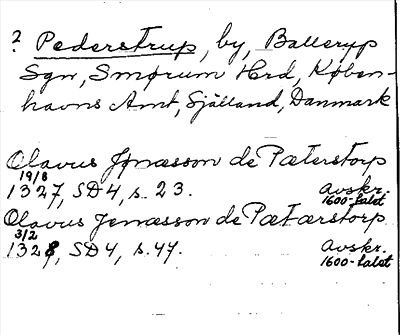 ? Pederstrup, by, Ballerup
Sgn, Smørum Hrd, Køben-
havns Amt, Sjælland, Danmark
Olavus Jonæsson de Pæterstorp
19/8
1327, SD4, s. 23. Avskr.
1600-talet
Olavus Jenæsson de Pætærstorp
3/2
1328, SD4, s. 47. Avskr.
1600-talet